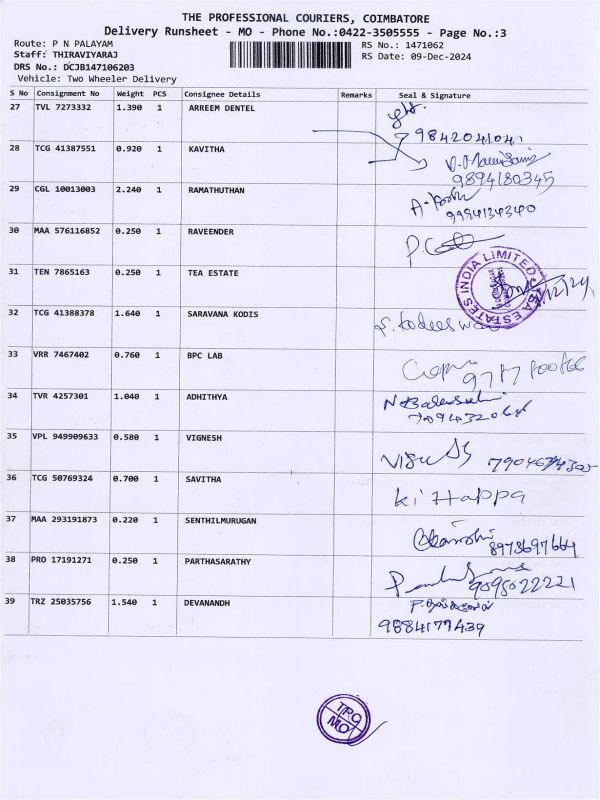 THE PROFESSIONAL COURIERS, COIMBATORE
Delivery Runsheet - MO - Phone No.:0422-3505555 - Page No.:3
Route: P N PALAYAM
RS No.: 1471062
Staff: THIRAVIYARAJ
RS Date: 09-Dec-2024
DRS No.: DCJB147106203
Vehicle: Two Wheeler Delivery
S No Consignment No Weight PCS Consignee Details Remarks Seal & Signature
27 TVL 7273332 1.390 1 ARREEM DENTEL
9842041041
28 TCG 41387551 0.920 1 KAVITHA
9894180345
29 CGL 10013003 2.240 1 RAMATHUTHAN
9994134340
30 MAA 576116852 0.250 1 RAVEENDER
31 TEN 7865163 0.250 1 TEA ESTATE
ESTATES INDIA LIMITED
32 TCG 41388378 1.640 1 SARAVANA KODIS
33 VRR 7467402 0.760 1 BPC LAB
34 TVR 4257301 1.040 1 ADHITHYA
35 VPL 949909633 0.580 1 VIGNESH
36 TCG 50769324 0.700 1 SAVITHA
Ki Happa
37 MAA 293191873 0.220 1 SENTHILMURUGAN
8973697664
38 PRO 17191271 0.250 1 PARTHASARATHY
9095022221
39 TRZ 25035756 1.540 1 DEVANANDH
9884179439
TPC
MO